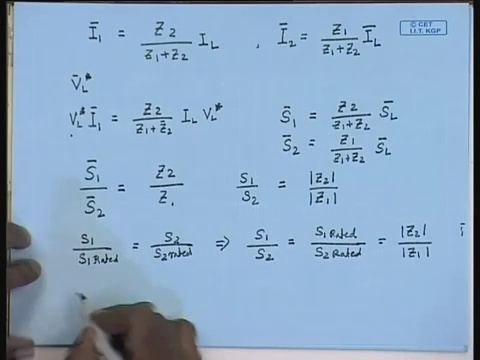 Ī₁ = Z₂ / (Z₁+Z₂) I_L , Ī₂ = Z₁ / (Z₁+Z₂) Ī_L
© CET
I.I.T. KGP
V̄_L*
V_L* Ī₁ = Z₂ / (Z₁+Z₂) I_L V_L*
S̄₁ = Z₂ / (Z₁+Z₂) S̄_L
S̄₂ = Z₁ / (Z₁+Z₂) S̄_L
S̄₁ / S̄₂ = Z₂ / Z₁
S₁ / S₂ = |Z₂| / |Z₁|
S₁ / S₁ Rated = S₂ / S₂ rated ⇒ S₁ / S₂ = S₁ Rated / S₂ Rated = |Z₂| / |Z₁|